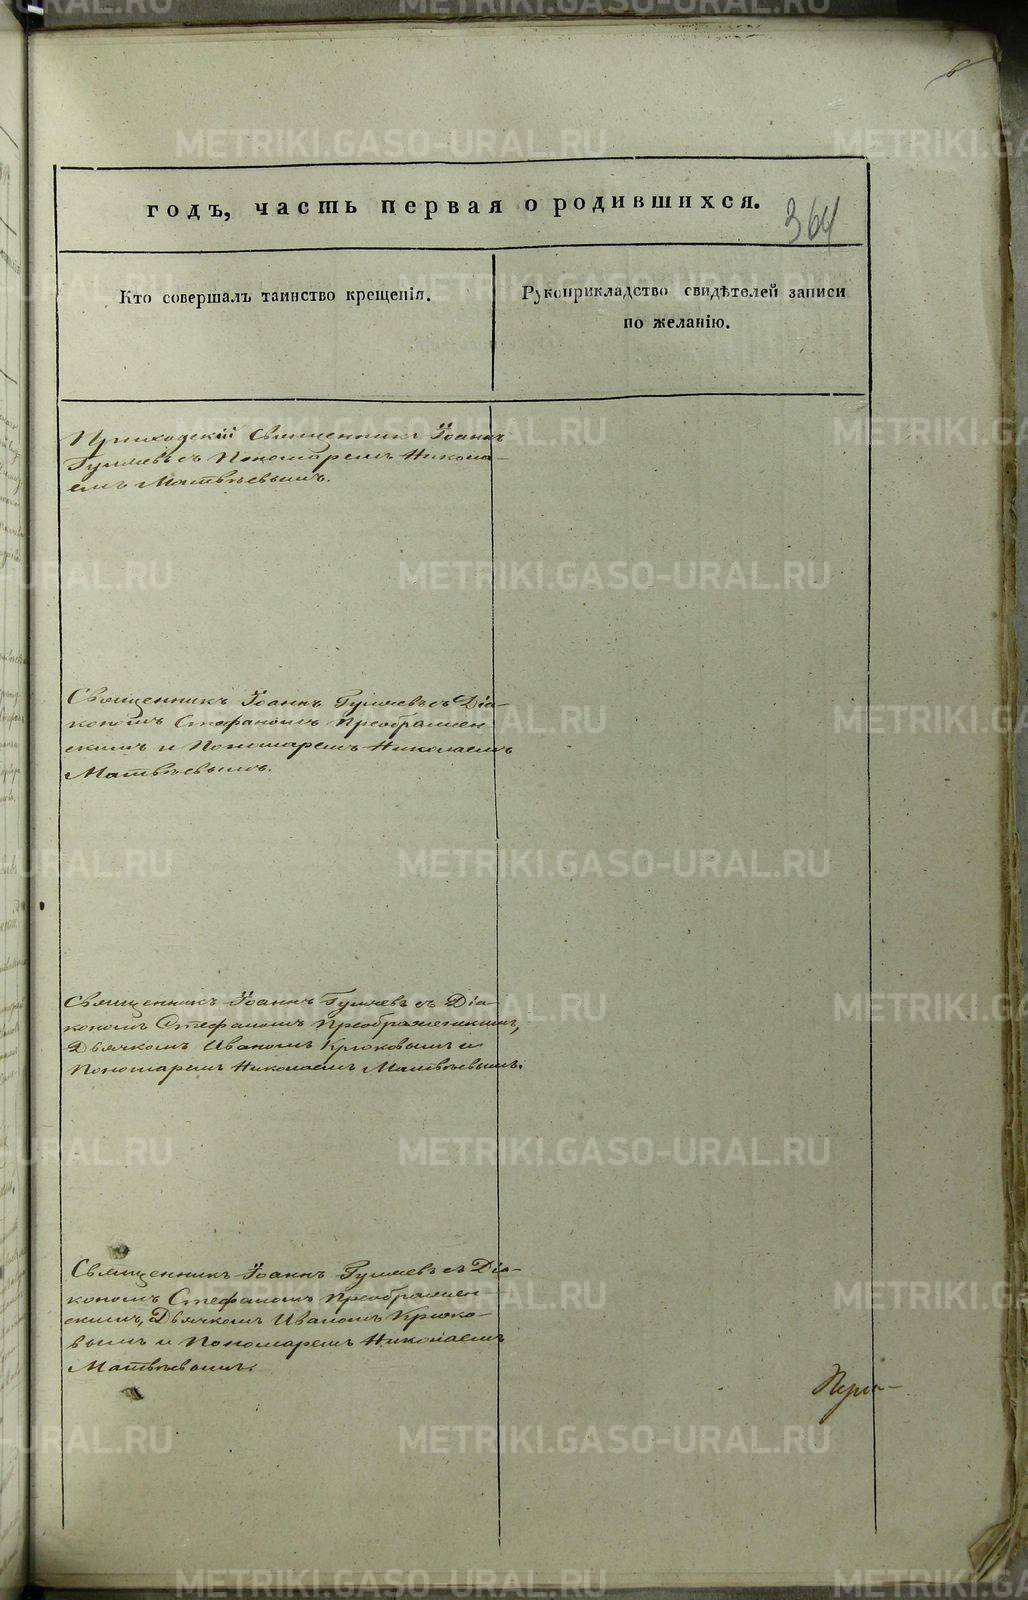 годъ, часть первая о родившихся.
364
Кто совершалъ таинство крещенія.
Рукоприкладство свидѣтелей записи
по желанію.
Приходскій Священникъ Іоаннъ
Гуляевъ съ Пономаремъ Никола-
емъ Матвѣевымъ.
Священникъ Іоаннъ Гуляевъ съ Діа-
кономъ Стефаномъ Преображен
скимъ и Пономаремъ Николаемъ
Матвѣевымъ.
Священникъ Іоаннъ Гуляевъ съ Діа-
кономъ Стефаномъ Преображенскимъ,
Дьячкомъ Иваномъ Крюковымъ и
Пономаремъ Николаемъ Матвѣевымъ.
Священникъ Іоаннъ Гуляевъ съ Діа-
кономъ Стефаномъ Преображен-
скимъ, Дьячкомъ Иваномъ Крюко-
вымъ и Пономаремъ Николаемъ
Матвѣевымъ.
METRIKI.GASO-URAL.RU